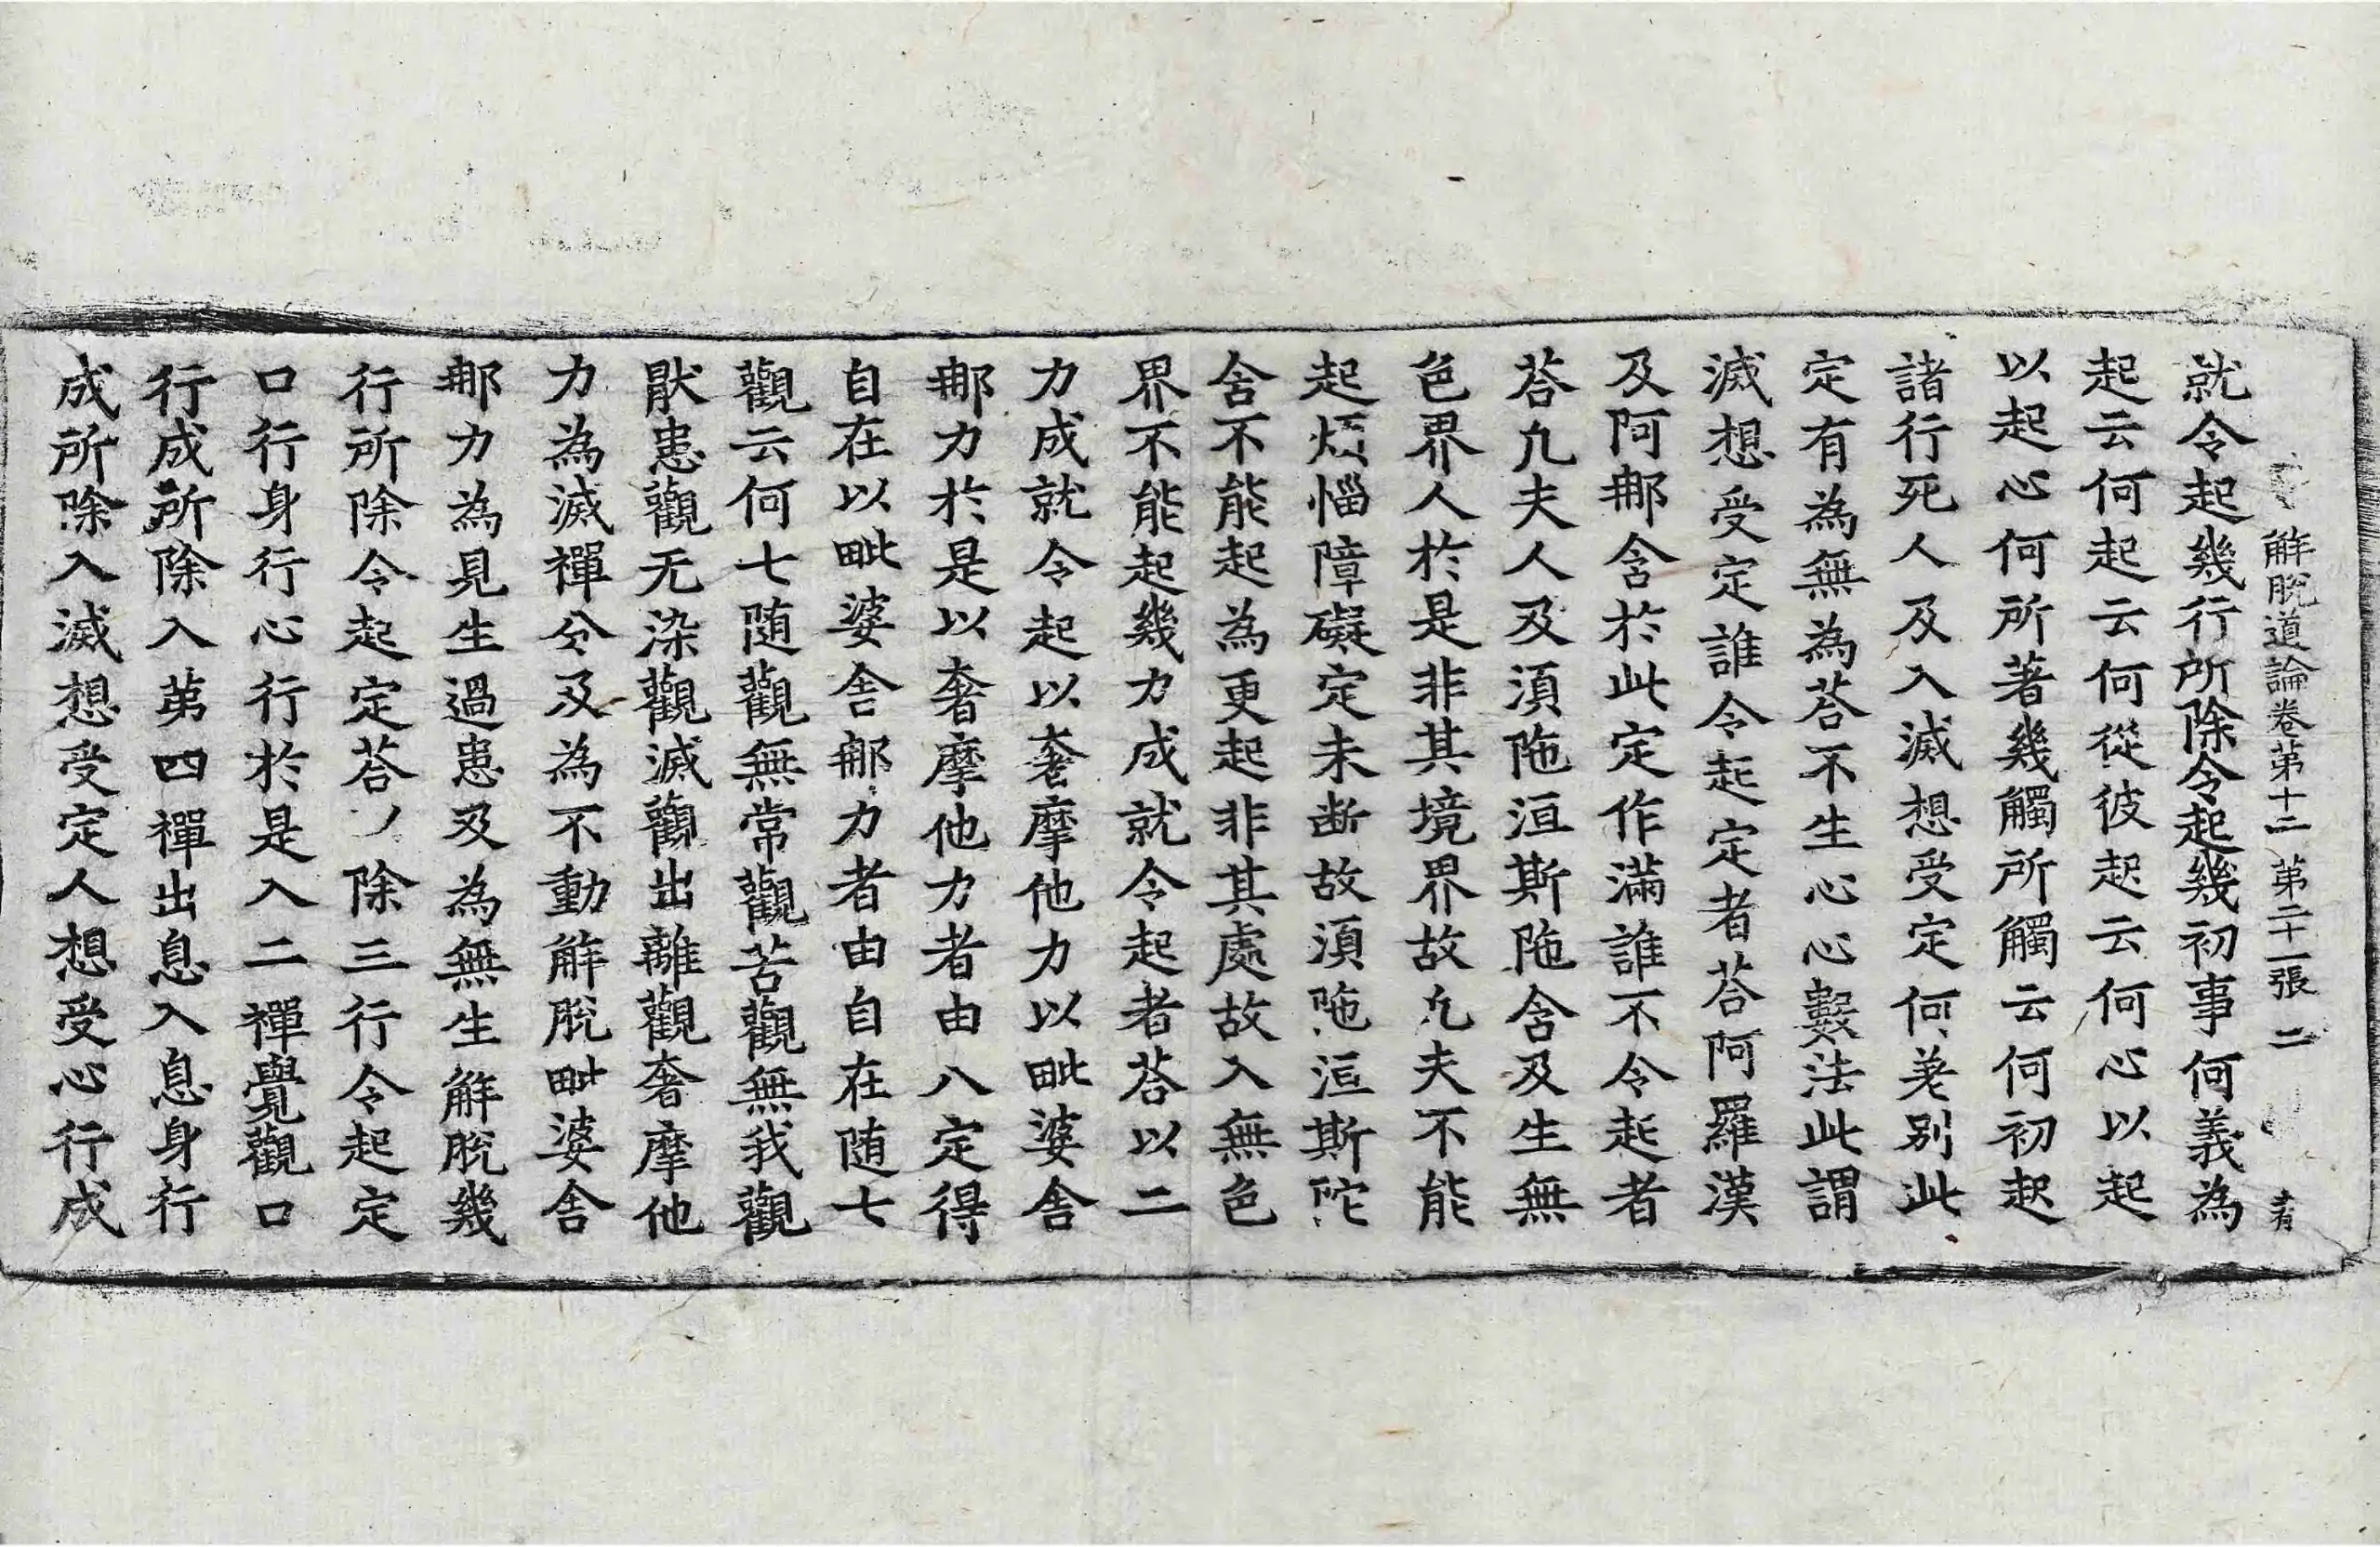 解脫道論卷第十二　第二十一張　二
就令起幾行所除令起幾初事何義為
起云何起云何從彼起云何心以起
以起心何所著幾觸所觸云何初起
諸行死人及入滅想受定何差別此
定有為無為荅不生心心數法此謂
滅想受定誰令起定者荅阿羅漢
及阿那含於此定作滿誰不令起者
荅凢夫人及須陁洹斯陁含及生無
色界人於是非其境界故凢夫不能
起煩惱障礙定未断故須陁洹斯陀
含不能起為更起非其處故入無色
界不能起幾力成就令起者荅以二
力成就令起以奢摩他力以毗婆舍
那力於是以奢摩他力者由八定得
自在以毗婆舍那力者由自在随七
觀云何七随觀無常觀苦觀無我觀
猒患觀无染觀滅觀出離觀奢摩他
力為滅禪分及為不動解脫毗婆舍
那力為見生過患及為無生解脫幾
行所除令起定荅　除三行令起定
口行身行心行於是入二禪覺觀口
行成所除入苐四禪出息入息身行
成所除入滅想受定人想受心行成